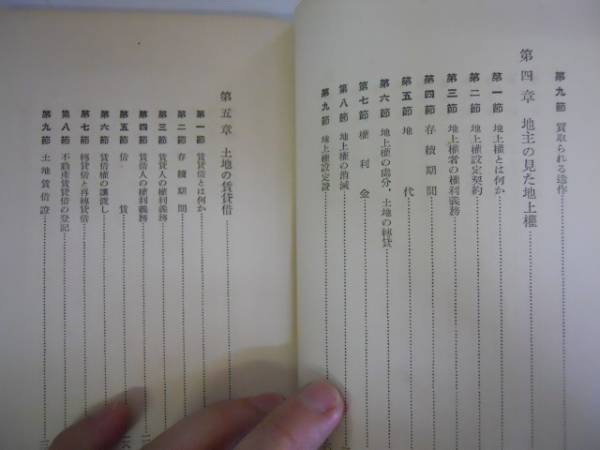 第九節 買取られる造作
第四章 地主の見た地上權
第一節 地上權とは何か
第二節 地上權設定契約
第三節 地上權者の權利義務
第四節 存續期間
第五節 地代
第六節 地上權の處分，土地の轉貸
第七節 權利金
第八節 地上權の消滅
第九節 地上權設定證
第五章 土地の賃貸借
第一節 賃貸借とは何か
第二節 存續期間
第三節 賃貸人の權利義務
第四節 賃借人の權利義務
第五節 借賃
第六節 賃借權の讓渡し
第七節 轉貸借と再轉貸借
第八節 不動産賃貸借の登記
第九節 土地賃借證